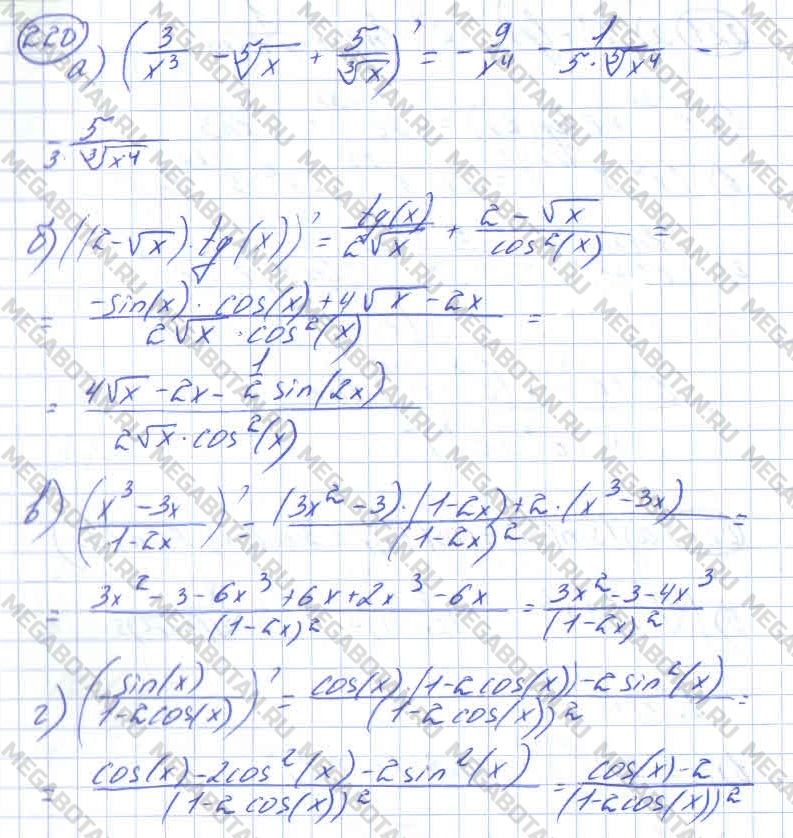 220
а) (3/x³ - ⁵√x + 5/³√x)' = - 9/x⁴ - 1/(5·⁵√x⁴) -
- 5/(3·³√x⁴)
б) ((2-√x)·tg(x))' = tg(x)/(2√x) + (2-√x)/cos²(x) =
= (-sin(x)·cos(x)+4√x-2x)/(2√x·cos²(x)) =
= (4√x-2x-1/2 sin(2x))/(2√x·cos²(x))
в) ((x³-3x)/(1-2x))' = ((3x²-3)·(1-2x)+2·(x³-3x))/(1-2x)² =
= (3x²-3-6x³+6x+2x³-6x)/(1-2x)² = (3x²-3-4x³)/(1-2x)²
г) (sin(x)/(1-2cos(x)))' = (cos(x)·(1-2cos(x))-2sin²(x))/(1-2cos(x))² =
= (cos(x)-2cos²(x)-2sin²(x))/(1-2cos(x))² = (cos(x)-2)/(1-2cos(x))²
MEGABOTAN.RU